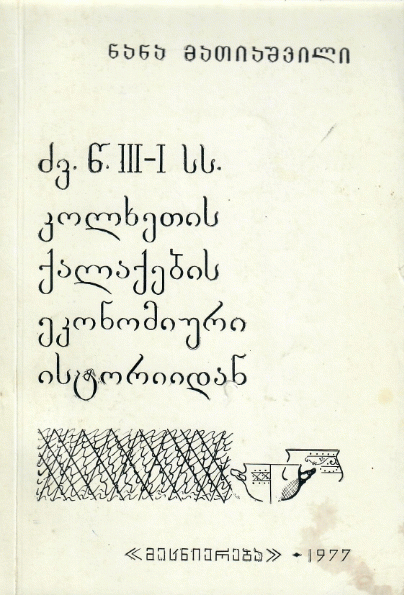 ნანა მათიაშვილი
ძვ. წ. III–I სს.
კოლხეთის
ქალაქების
ეკონომიური
ისტორიიდან
«მეცნიერება» 1977